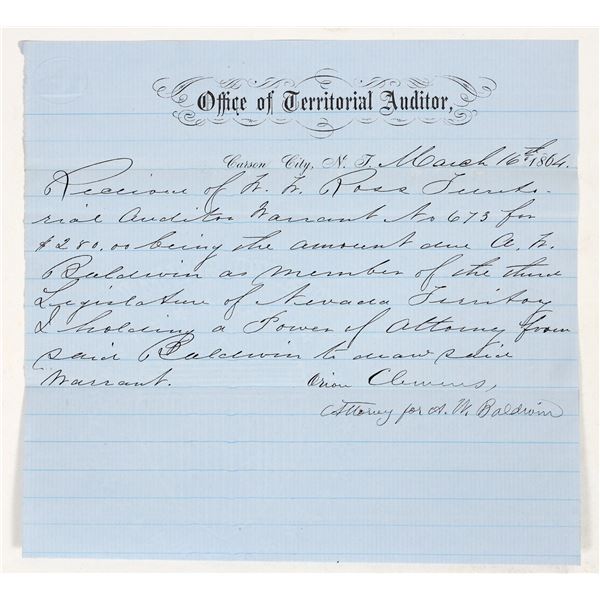 Office of Territorial Auditor,
Carson City, N. T. March 16th 1864.
Received of W. W. Ross Territo-
rial Auditor Warrant No 673 for
$280.00 being the amount due A. W.
Baldwin as member of the third
Legislature of Nevada Territory
I holding a Power of Attorney from
said Baldwin to draw said
Warrant. Orion Clemens,
Attorney for A. W. Baldwin